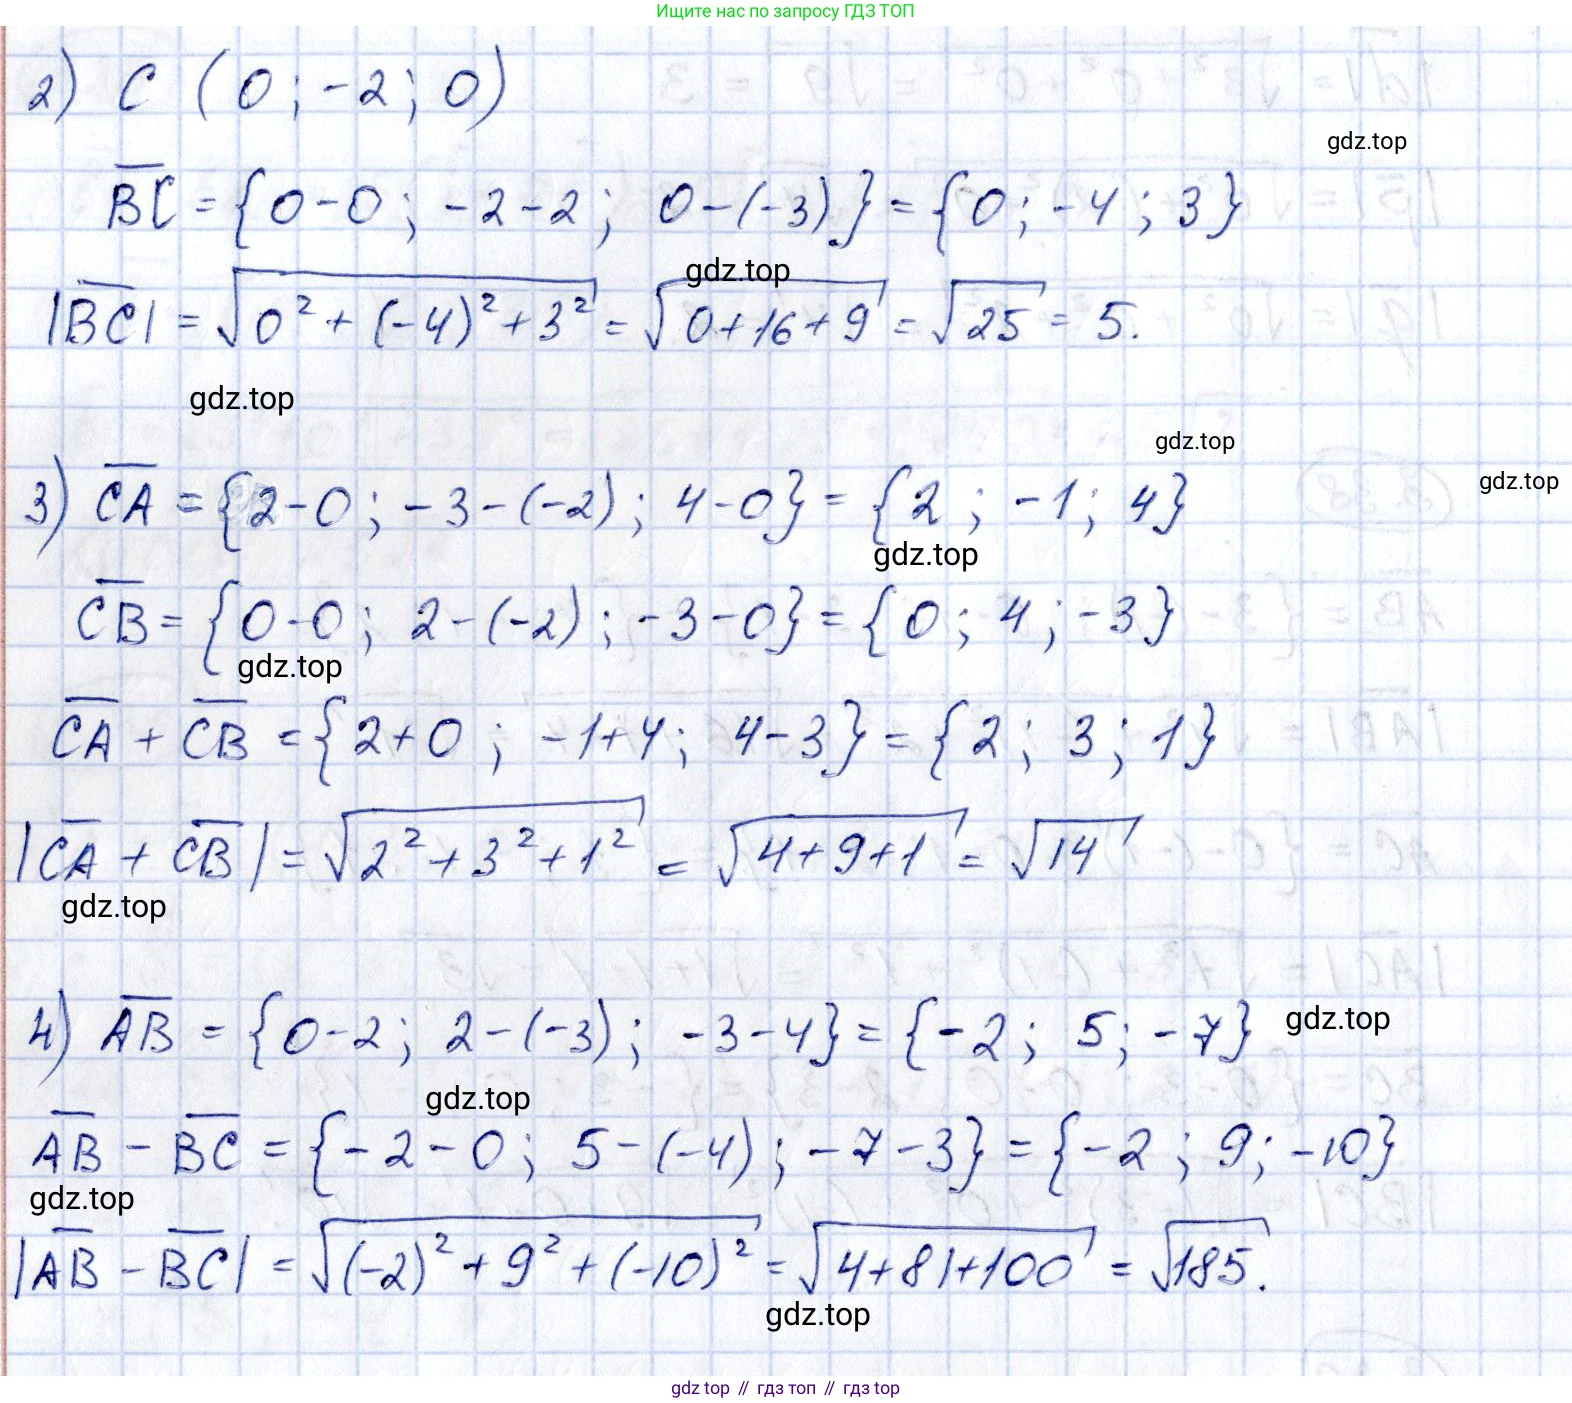 Ищите нас по запросу ГДЗ ТОП
2) C (0; -2; 0)
gdz.top
BC = {0-0; -2-2; 0-(-3)} = {0; -4; 3}
gdz.top
|BC| = √(0² + (-4)² + 3²) = √(0+16+9) = √25 = 5.
gdz.top
gdz.top
gdz.top
3) CA = {2-0; -3-(-2); 4-0} = {2; -1; 4}
gdz.top
CB = {0-0; 2-(-2); -3-0} = {0; 4; -3}
gdz.top
CA + CB = {2+0; -1+4; 4-3} = {2; 3; 1}
|CA + CB| = √(2² + 3² + 1²) = √(4+9+1) = √14
gdz.top
4) AB = {0-2; 2-(-3); -3-4} = {-2; 5; -7}
gdz.top
gdz.top
AB - BC = {-2-0; 5-(-4); -7-3} = {-2; 9; -10}
gdz.top
|AB - BC| = √((-2)² + 9² + (-10)²) = √(4+81+100) = √185.
gdz.top
gdz top // гдз топ // гдз top